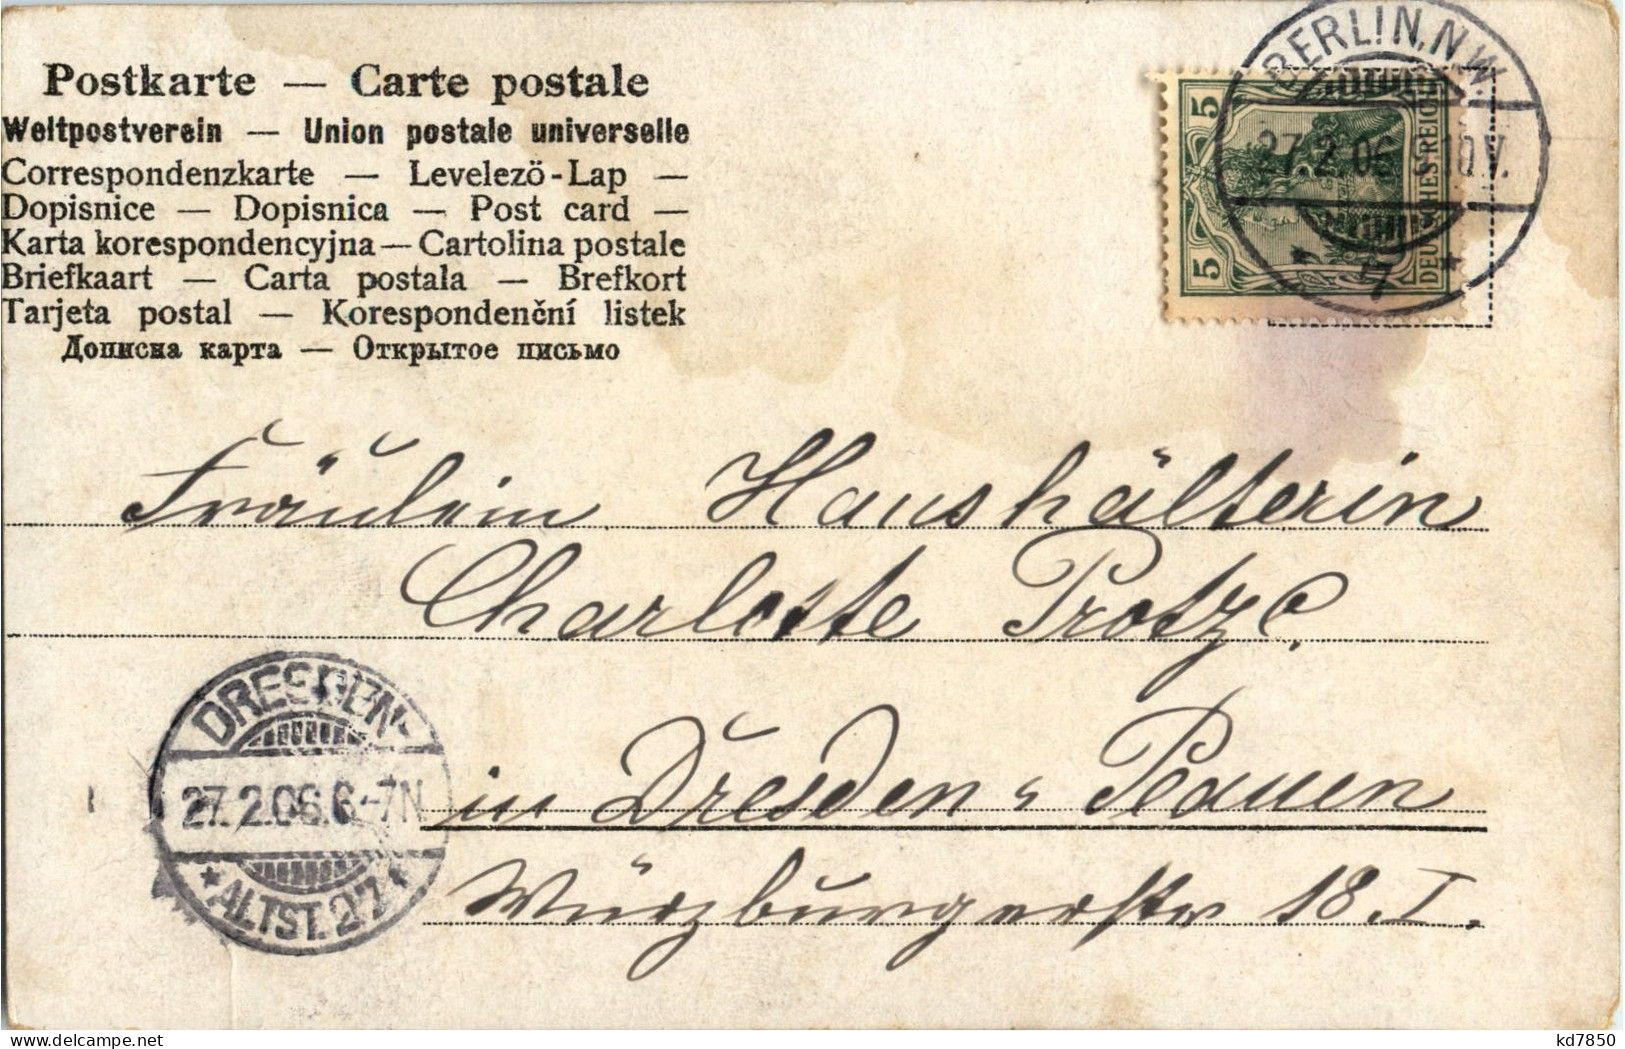 Postkarte — Carte postale
Weltpostverein — Union postale universelle
Correspondenzkarte — Levelezö-Lap —
Dopisnice — Dopisnica — Post card —
Karta korespondencyjna — Cartolina postale
Briefkaart — Carta postala — Brefkort
Tarjeta postal — Korespondenční listek
Дописна карта — Открытое письмо
BERLIN, N.W.
27.2.06 9-10V.
* 7 *
5
5
DEUTSCHES REICH
Fräulein Haushälterin
Charlotte Protze.
in Dresden - Plauen
Würzburgerstr 18 I.
DRESDEN-
27.2.06.6-7N
* ALTST. 27 *
delcampe.net
kd7850